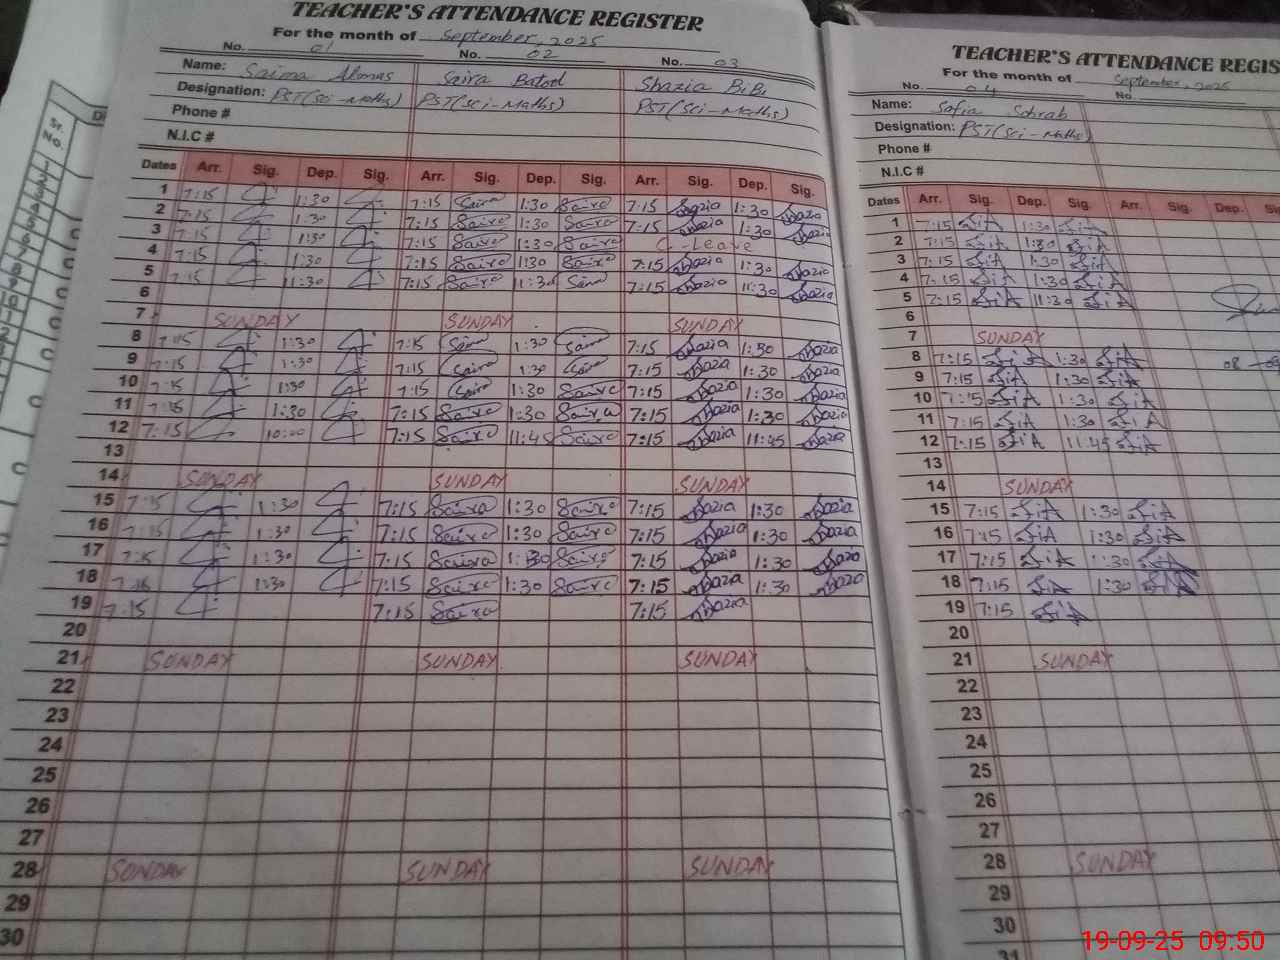 TEACHER'S ATTENDANCE REGISTER
For the month of September, 2025
No. 01 No. 02 No. 03
Name: Saima Almas Saira Batool Shazia BiBi
Designation: PST(Sci-Maths) PST(Sci-Maths) PST(Sci-Maths)
Phone #
N.I.C #
Dates Arr. Sig. Dep. Sig. Arr. Sig. Dep. Sig. Arr. Sig. Dep. Sig.
1 7:15 1:30 7:15 Saira 1:30 Saira 7:15 Shazia 1:30 Shazia
2 7:15 1:30 7:15 Saira 1:30 Saira 7:15 Shazia 1:30 Shazia
3 7:15 1:30 7:15 Saira 1:30 Saira C-Leave
4 7:15 1:30 7:15 Saira 1:30 Saira 7:15 Shazia 1:30 Shazia
5 7:15 11:30 7:15 Saira 11:30 Saira 7:15 Shazia 11:30 Shazia
6
7 SUNDAY SUNDAY SUNDAY
8 7:15 1:30 7:15 Saira 1:30 Saira 7:15 Shazia 1:30 Shazia
9 7:15 1:30 7:15 Saira 1:30 Saira 7:15 Shazia 1:30 Shazia
10 7:15 1:30 7:15 Saira 1:30 Saira 7:15 Shazia 1:30 Shazia
11 7:15 1:30 7:15 Saira 1:30 Saira 7:15 Shazia 1:30 Shazia
12 7:15 7:15 Saira 11:45 Saira 7:15 Shazia 11:45 Shazia
13
14 SUNDAY SUNDAY SUNDAY
15 7:15 1:30 7:15 Saira 1:30 Saira 7:15 Shazia 1:30 Shazia
16 7:15 1:30 7:15 Saira 1:30 Saira 7:15 Shazia 1:30 Shazia
17 7:15 1:30 7:15 Saira 1:30 Saira 7:15 Shazia 1:30 Shazia
18 7:15 1:30 7:15 Saira 1:30 Saira 7:15 Shazia 1:30 Shazia
19 7:15 7:15 Saira 7:15 Shazia
20
21 SUNDAY SUNDAY SUNDAY
22
23
24
25
26
27
28 SUNDAY SUNDAY SUNDAY
29
30
TEACHER'S ATTENDANCE REGIS
For the month of September, 2025
No. 04 No.
Name: Safia Sohrab
Designation: PST(Sci-Maths)
Phone #
N.I.C #
Dates Arr. Sig. Dep. Sig. Arr. Sig. Dep.
1 7:15 1:30
2 7:15 1:30
3 7:15 1:30
4 7:15 1:30
5 7:15 11:30
6
7 SUNDAY
8 7:15 1:30
9 7:15 1:30
10 7:15 1:30
11 7:15 1:30
12 7:15 11:45
13
14 SUNDAY
15 7:15 1:30
16 7:15 1:30
17 7:15 1:30
18 7:15 1:30
19 7:15
20
21 SUNDAY
22
23
24
25
26
27
28 SUNDAY
29
30
31
Sr. No.
19-09-25 09:50